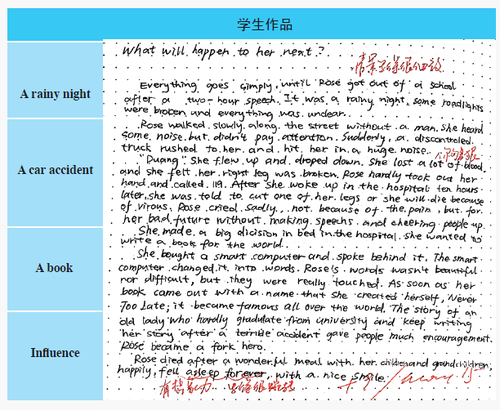 学生作品
What will happen to her next?
带着
A rainy night
Everything goes simply, until Rose got out of a school
after a two-hour speech. It was a rainy night, some roadlights
were broken and everything was unclear.
A car accident
Rose walked slowly along the street without a man, she heard
some noise but didn't pay attention. Suddenly, a discontroled
truck rushed to her and hit her in a huge noise.
"Duang". She flew up and droped down. She lost a lot of blood
and she felt her right leg was broken. Rose hardly took out her
hand and called 119. After she woke up in the hospital ten hours
later, she was told to cut one of her legs or she will die because
of virous. Rose cried sadly, not because of the pain, but for
her bad future without making speechs and cheering people up.
A book
She made a big dicision in bed in the hospital. She wanted to
write a book for the world.
She bought a smart computer and spoke behind it. The smart
computer changed it into words. Rose's words wasn't beautiful
nor difficult, but they were really touched. As soon as her
book came out with a name that she created herself, Never
Too Late, it became famous all over the world. The story of an
old lady who hardly gradulate from university and keep writing
her story after a terrible accident gave people much encouragement.
Rose became a fork hero.
Influence
Rose died after a wonderful meal with her children and grandchildren,
happily, fell asleep forever, with a nice smile.
有想象力